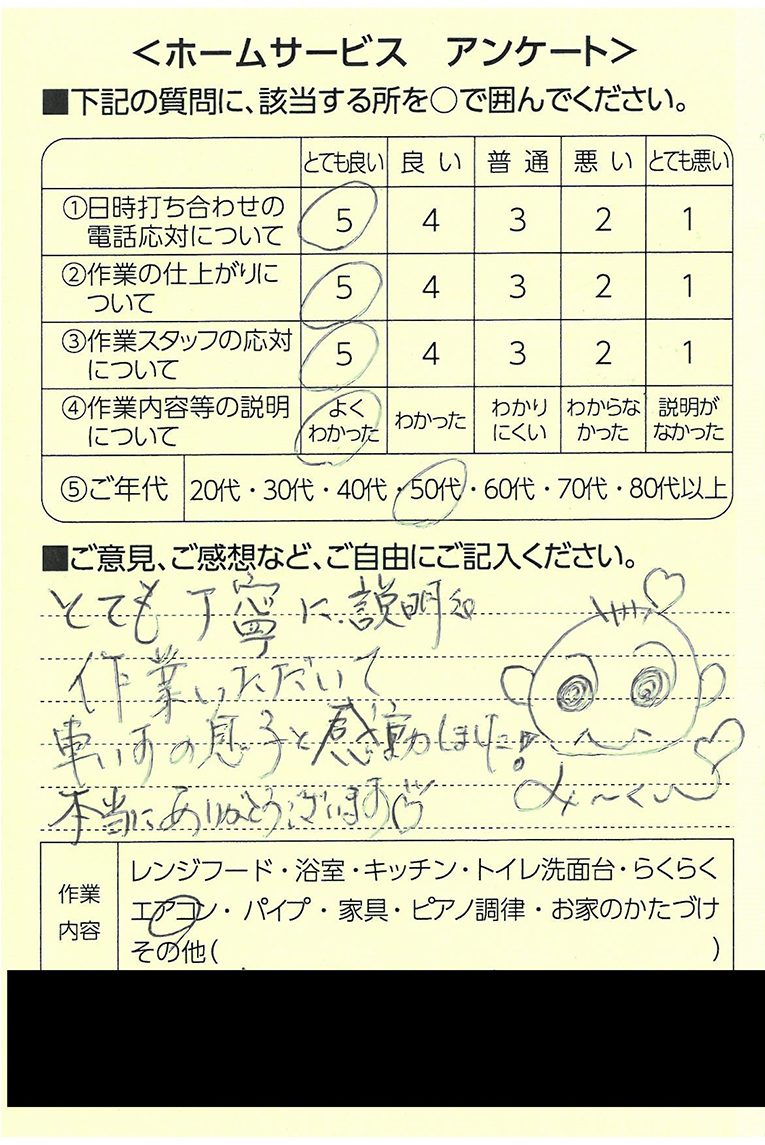 ＜ホームサービス　アンケート＞
■下記の質問に、該当する所を○で囲んでください。
とても良い 良い 普通 悪い とても悪い
①日時打ち合わせの
電話応対について 5 4 3 2 1
②作業の仕上がりに
ついて 5 4 3 2 1
③作業スタッフの応対
について 5 4 3 2 1
④作業内容等の説明
について よく
わかった わかった わかり
にくい わからな
かった 説明が
なかった
⑤ご年代 20代・30代・40代・50代・60代・70代・80代以上
■ご意見、ご感想など、ご自由にご記入ください。
とても丁寧に説明
作業いただいて
車いすの息子と感動しました!
本当にありがとうございます♡
作業
内容
レンジフード・浴室・キッチン・トイレ洗面台・らくらく
エアコン・パイプ・家具・ピアノ調律・お家のかたづけ
その他(　)